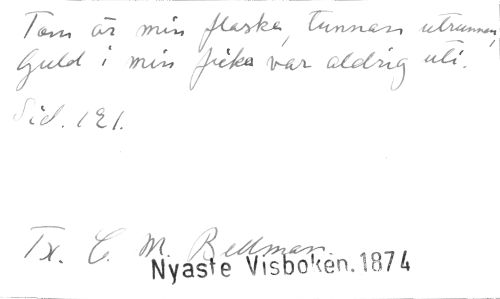 Tom är min flaska, tunnan utrunnen,
Guld i min ficka var aldrig uti.
Sid. 121.
Tx. C. M. Bellman.
Nyaste Visboken. 1874